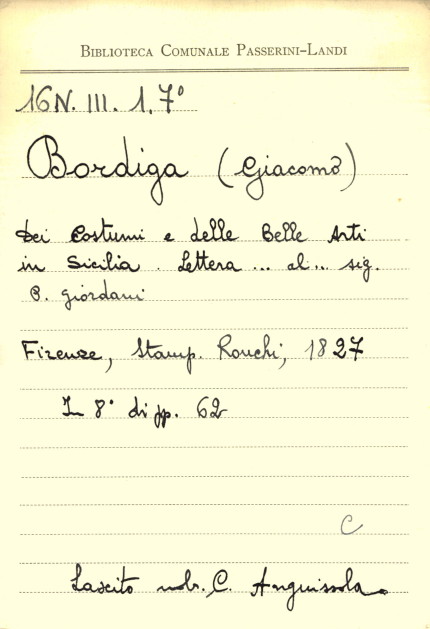 BIBLIOTECA COMUNALE PASSERINI-LANDI
16N. III. 1.7°
Bordiga (Giacomo)
Dei Costumi e delle Belle Arti
in Sicilia. Lettera ... al... sig.
P. Giordani
Firenze, Stamp. Ronchi, 1827
In 8° di pp. 62
C
Lascito nob. C. Anguissola.